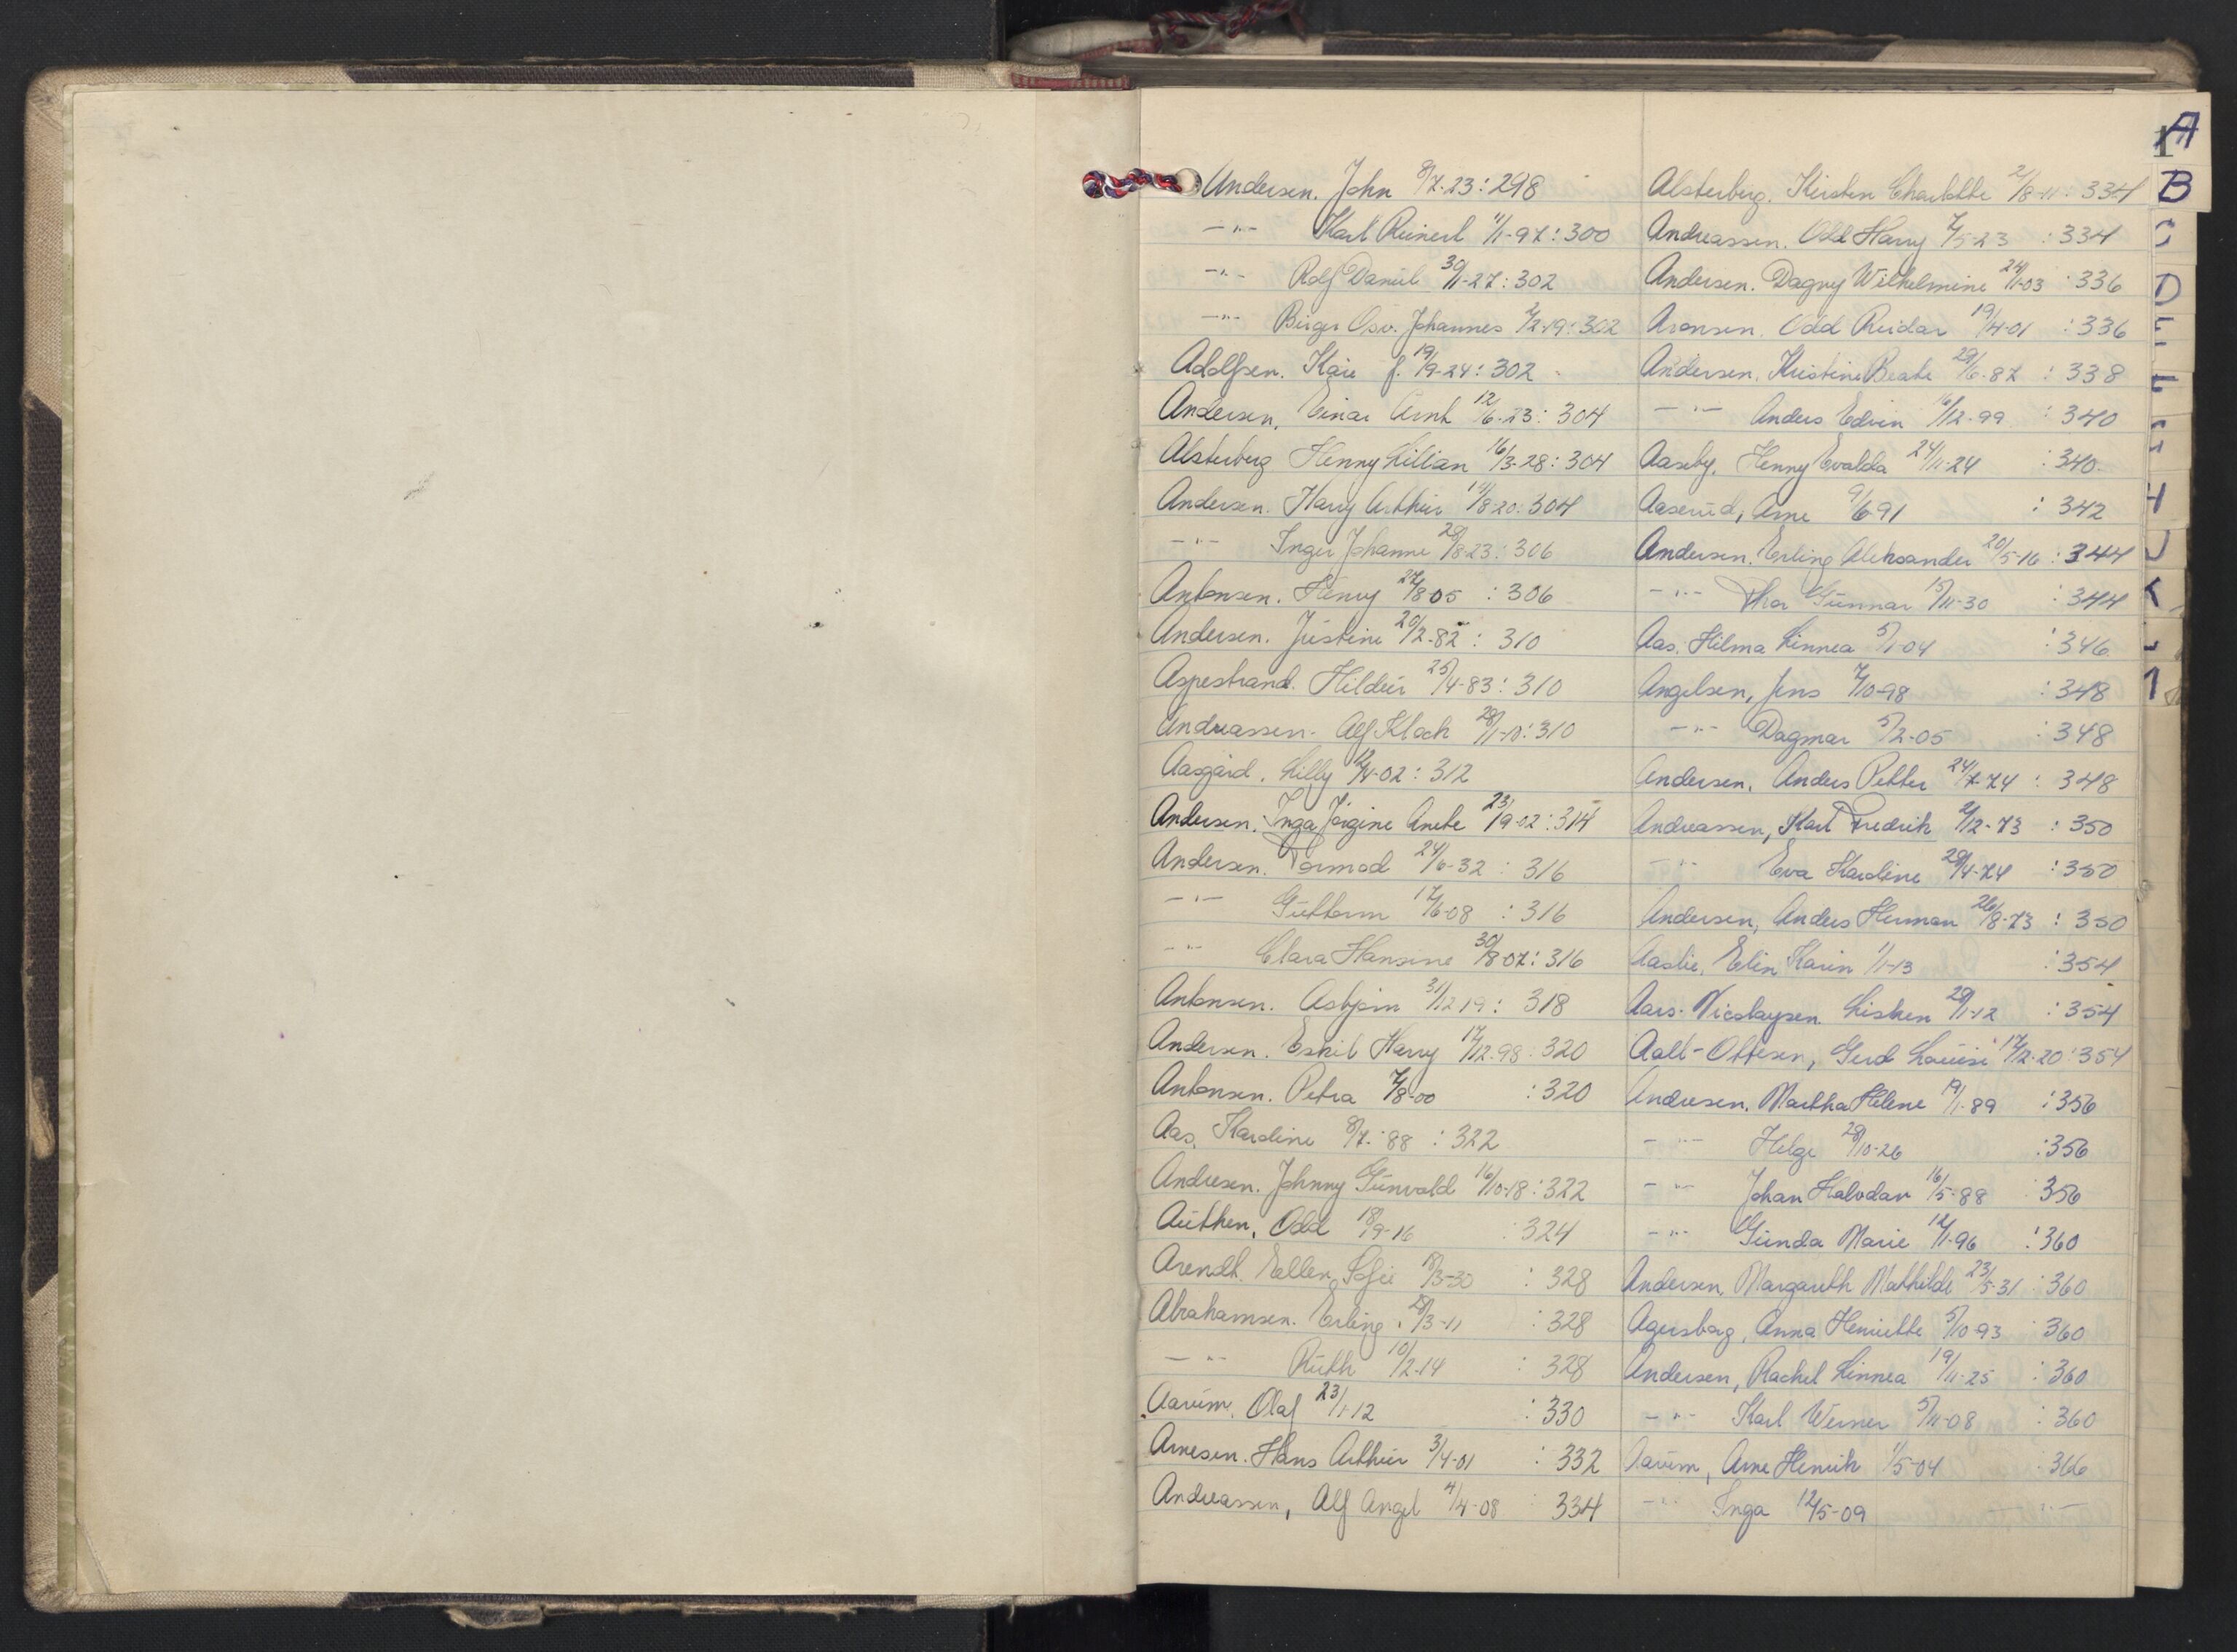 1
A
B
C
D
E
F
G
H
J
K
L
Andersen. John 8/7-23 : 298
-"- Karl Reinert 11/1-97 : 300
-"- Rolf Daniel 30/11-27 : 302
-"- Birger Osv. Johannes 2/2-19 : 302
Adolfsen. Kåre f. 19/9-24 : 302
Andersen, Einar Arnt 12/6-23 : 304
Alsterberg Henny Lilian 16/3-28 : 304
Andersen. Harry Arthur 11/8-20 : 304
-"- Inger Johanne 28/8-23 : 306
Antonsen. Henry 27/8-05 : 306
Andersen. Justine 20/2-82 : 310
Aspestrand. Hildur 25/4-83 : 310
Andreassen. Alf Kloch 28/11-10 : 310
Aasgård. Lilly 12/4-02 : 312
Andersen. Inga Jørgine Anete 23/9-02 : 314
Andersen. Tormod 24/6-32 : 316
-"- Guttorm 17/6-08 : 316
-"- Clara Hansine 30/8-07 : 316
Antonsen. Asbjørn 31/12 19 : 318
Andersen. Eskil Harry 17/12-98 : 320
Antonsen. Petra 7/8-00 : 320
Aas. Karoline 8/7-88 : 322
Andresen. Johnny Gunvald 16/10-18 : 322
Authen, Odd 18/9-16 : 324
Arendt. Ellen Sofie 18/3-30 : 328
Abrahamsen. Erling 28/3-11 : 328
-"- Ruth 10/2-14 : 328
Aarum. Olaf 23/1-12 : 330
Arnesen. Hans Arthur 3/4-01 : 332
Andreassen, Alf Angel 4/4-08 : 334
Alsterberg. Kirsten Charlotte 2/8-11 : 334
Andreassen. Odd Harry 7/5-23 : 334
Andersen. Dagny Wilhelmine 24/11-03 : 336
Aronsen. Odd Reidar 19/4-01 : 336
Andersen. Kristine Beate 29/6-87 : 338
-"- Anders Edvin 16/12-99 : 340
Aaseby, Henny Evalda 24/11-24 : 340
Aaserud, Arne 9/6-91 : 342
Andersen. Erling Aleksander 20/5-16 : 344
-"- Thor Gunnar 15/11-30 : 344
Aas. Hilma Linnea 5/1-04 : 346
Angelsen, Jens 7/10-98 : 348
-"- Dagmar 5/2-05 : 348
Andersen, Anders Petter 24/7-74 : 348
Andreassen, Karl Fredrik 2/12-73 : 350
-"- Eva Karoline 29/4-74 : 350
Andersen, Anders Herman 26/8-73 : 350
Aaslie, Elin Karin 1/1-13 : 354
Aars-Nicolaysen. Lisken 29/1-12 : 354
Aall-Ottesen, Gerd Louise 17/2-20 : 354
Andresen. Martha Helene 19/1-89 : 356
-"- Helge 28/10-26 : 356
-"- Johan Halvdan 16/5-88 : 356
-"- Gunda Marie 12/1-96 : 360
Andersen, Margareth Mathilde 23/5-31 : 360
Agersborg, Anna Henriette 5/10-93 : 360
Andersen, Rachel Linnea 19/11-25 : 360
-"- Karl Werner 5/11-08 : 360
Aarum, Arne Henrik 1/5-04 : 366
-"- Inga 12/5-09 -"-